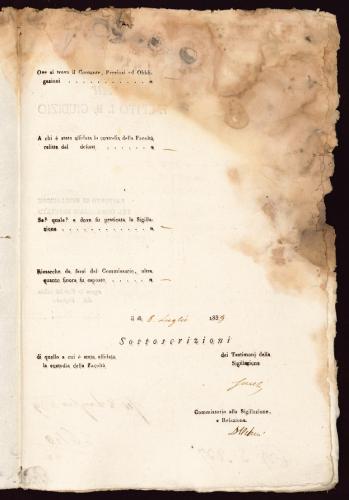 Ove si trova il Contante, Preziosi ed Obbli-
gazioni . . . . . . . . . . . . . . n.
A chi è stata affidata la custodia della Facoltà
relitta dal defunt . . . . . . . . . . n.
Se? quale? e dove fu praticata la Sigilla-
zione . . . . . . . . . . . . . . n.
Rimarche da farsi dal Commissario, oltre
quanto finora fu esposto . . . . . . . n.
il dì 8 Luglio 1839
Sottoscrizioni
di quello a cui è stata affidata
la custodia della Facoltà.
dei Testimonj della
Sigillazione
Commissario alla Sigillazione,
e Relazione.